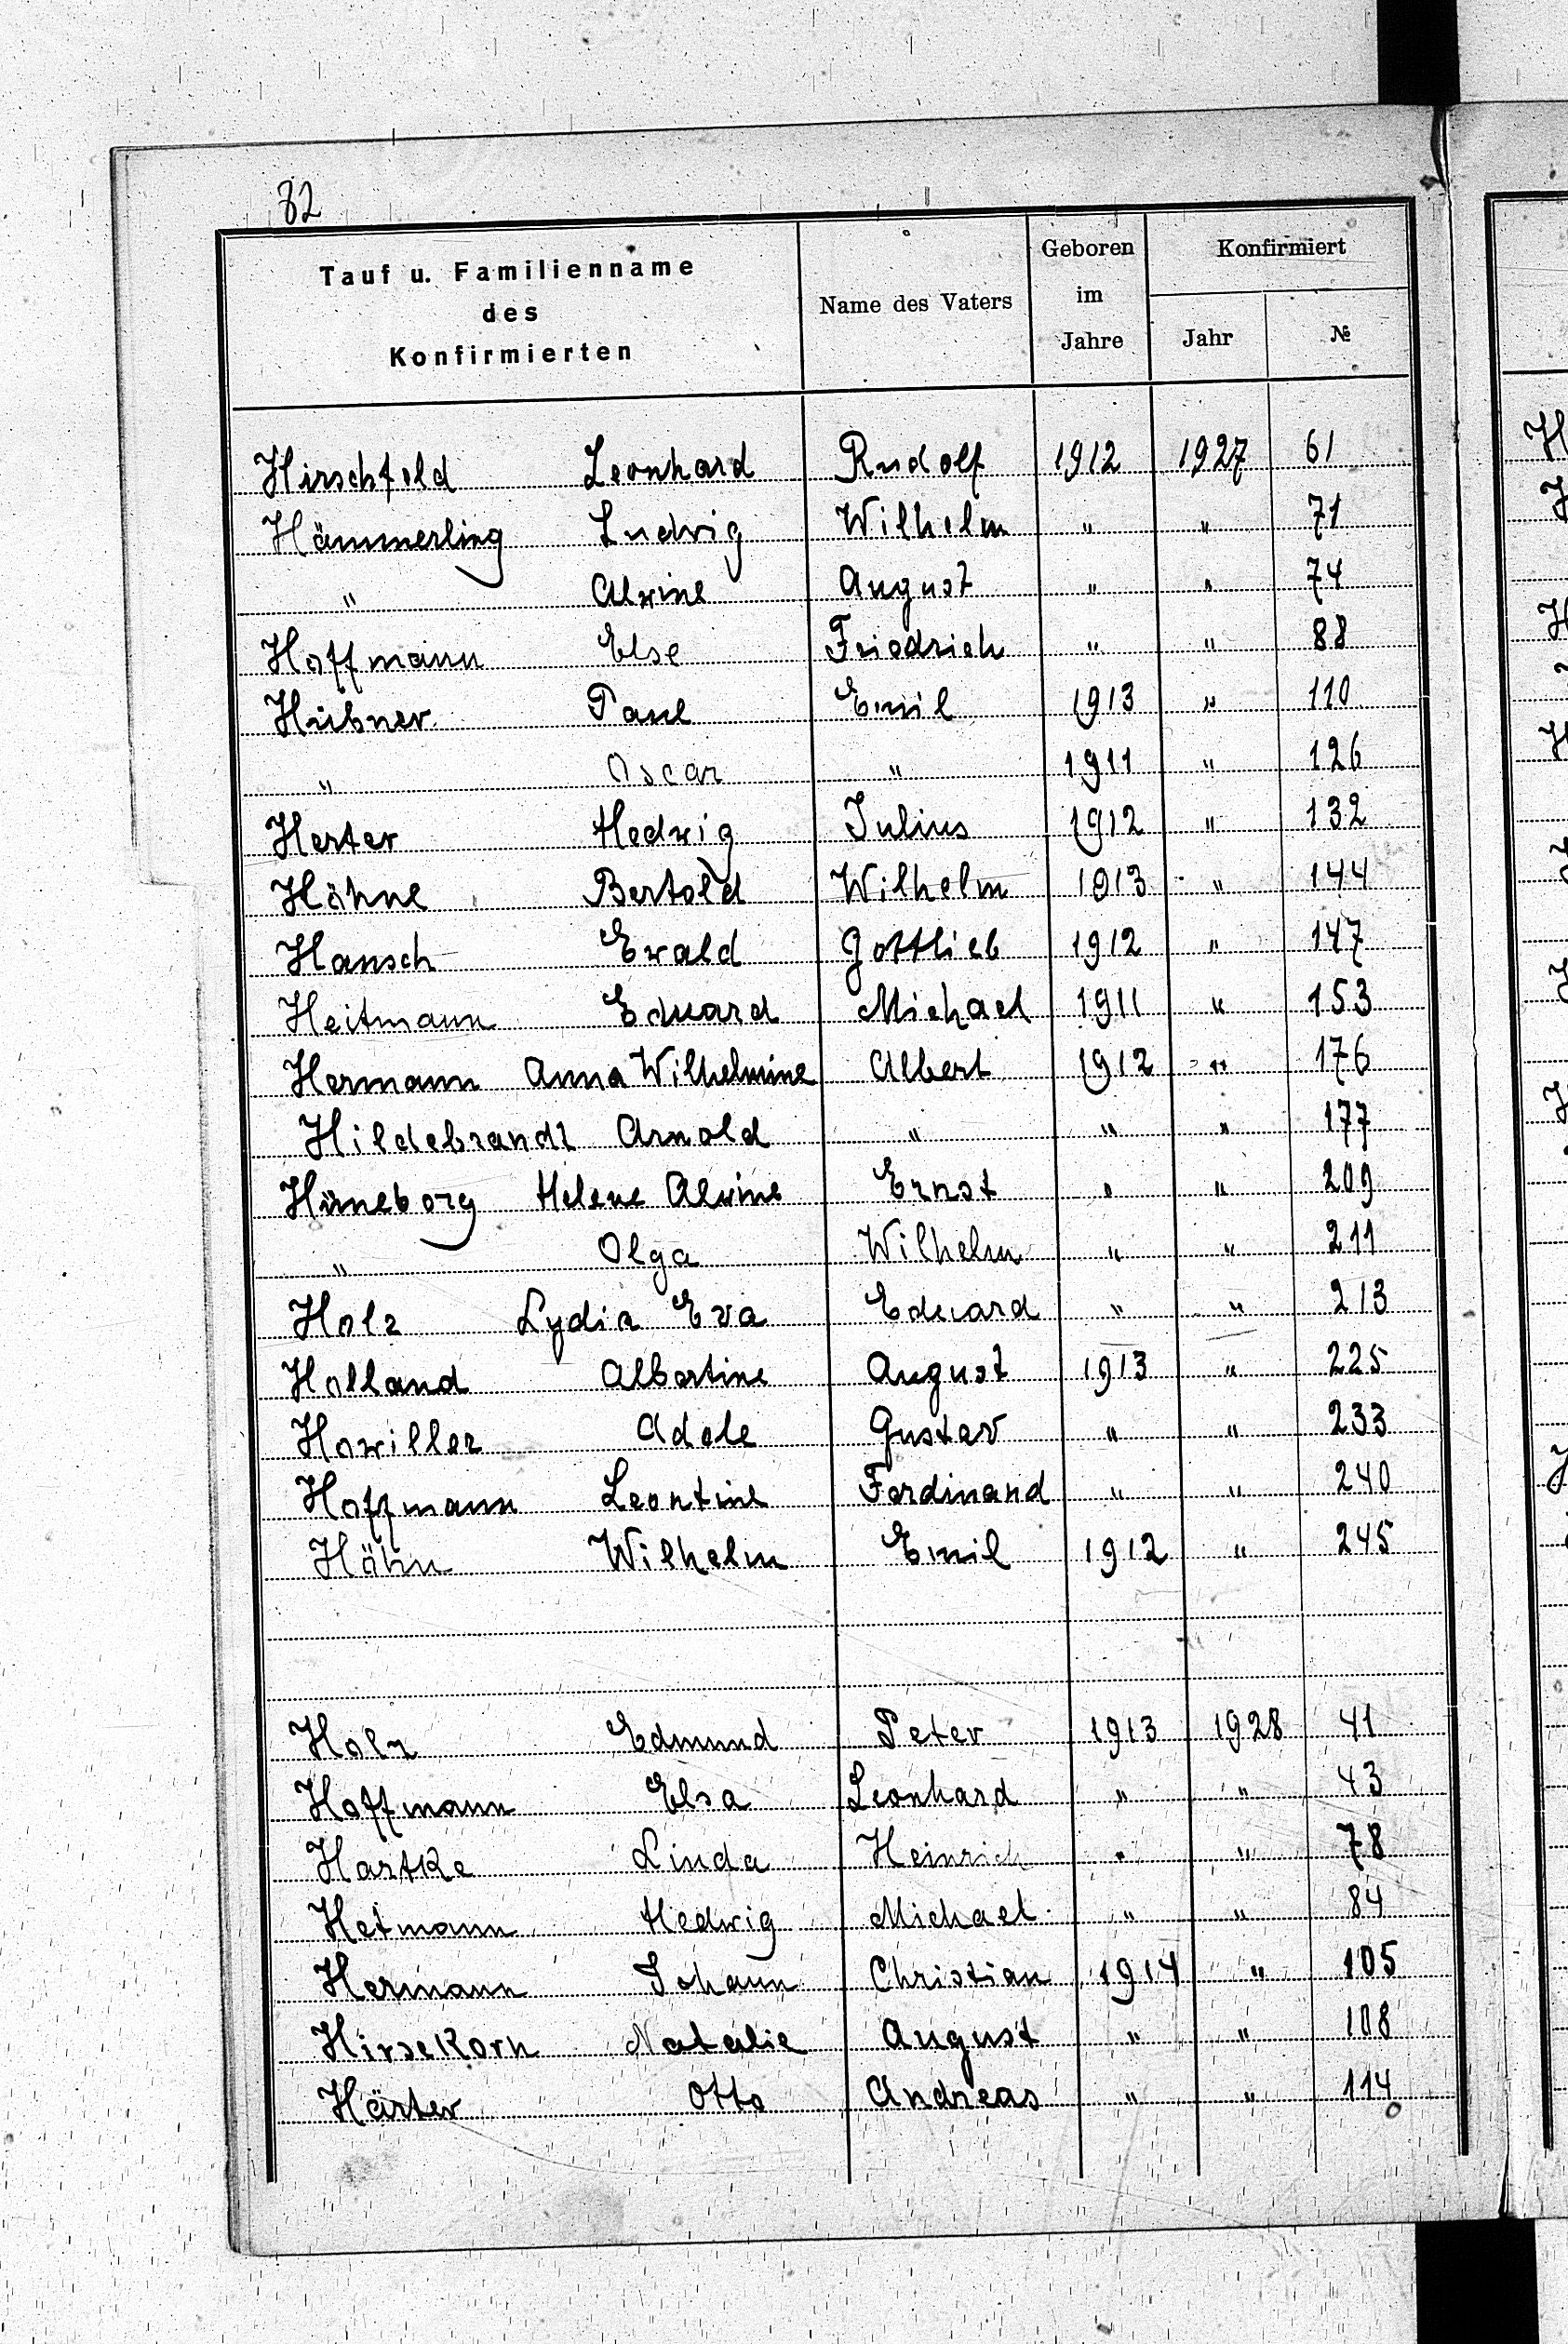 82
Tauf u. Familienname des Konfirmierten | Name des Vaters | Geboren im Jahre | Konfirmiert Jahr | №
Hirschfeld Leonhard Rudolf 1912 1927 61
Hämmerling Ludwig Wilhelm " " 71
" Alwine August " " 74
Hoffmann Else Friedrich " " 88
Hübner Paul Emil 1913 " 110
" Oscar " 1911 " 126
Herter Hedwig Julius 1912 " 132
Höhne Bertold Wilhelm 1913 " 144
Hansch Ewald Gottlieb 1912 " 147
Heitmann Eduard Michael 1911 " 153
Hermann Anna Wilhelmine Albert 1912 " 176
Hildebrandt Arnold " " " 177
Hüneborg Helene Alwine Ernst " " 209
" Olga Wilhelm " " 211
Holz Lydia Eva Eduard " " 213
Holland Albertine August 1913 " 225
Howiller Adele Gustav " " 233
Hoffmann Leontine Ferdinand " " 240
Hähn Wilhelm Emil 1912 " 245
Holz Edmund Peter 1913 1928 41
Hoffmann Elsa Leonhard " " 43
Hartke Linda Heinrich " " 78
Hetmann Hedwig Michael " " 84
Hermann Johann Christian 1914 " 105
Hirsekorn Natalie August " " 108
Härter Otto Andreas " " 114